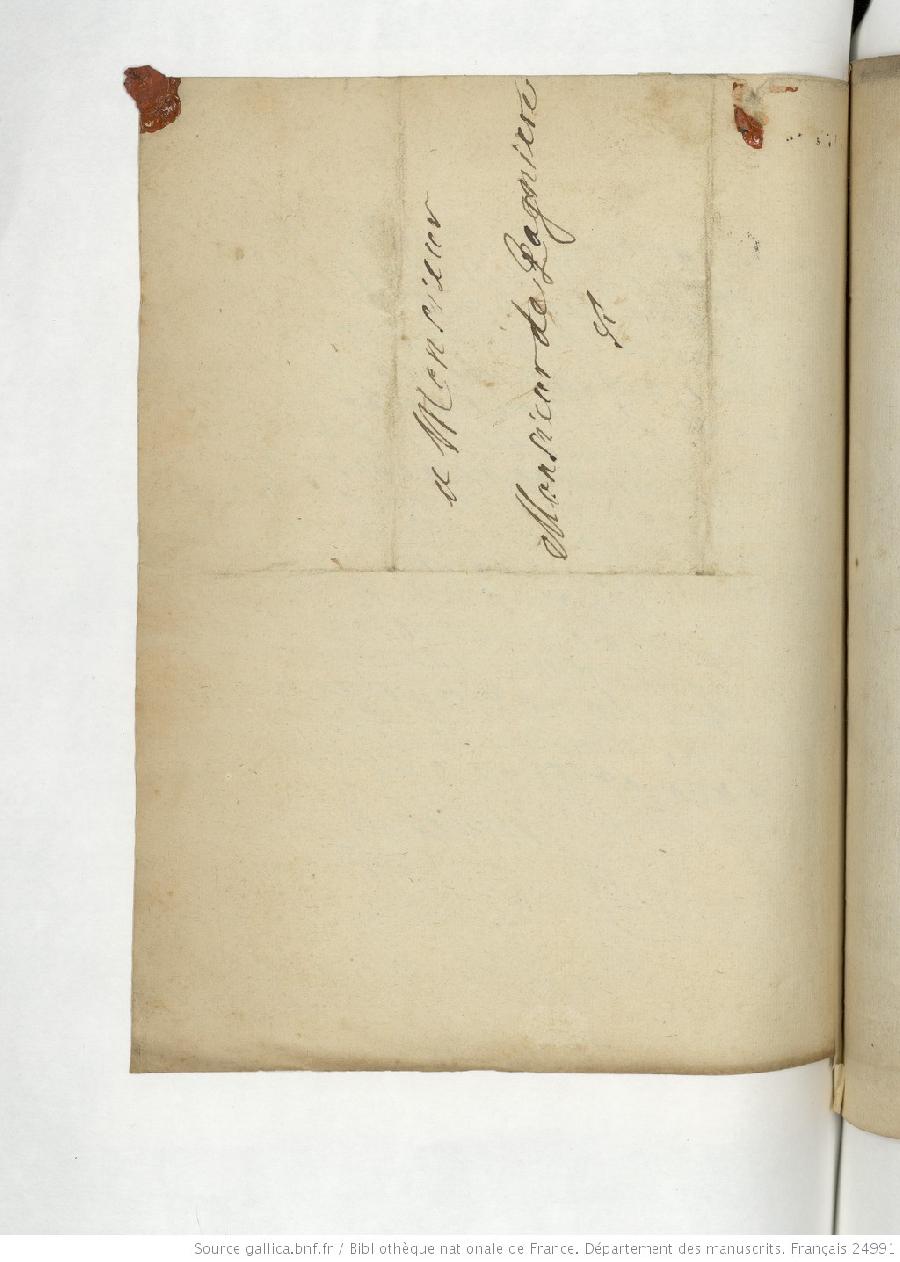 a Monsieur
Monsieur de Gagniere
Source gallica.bnf.fr / Bibliothèque nationale de France. Département des manuscrits. Français 24991